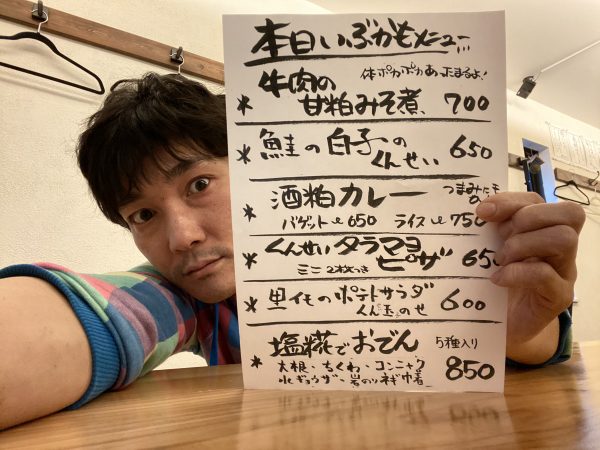 本日いぶかもメニュー
体ポカポカあったまるよ!
* 牛肉の
甘粕みそ煮、 700
* 鮭の白子の
くんせい 650
酒粕カレー つまみにも
バゲット 650 ライス 750
* くんせいタラマヨ
ピザ 650
ミニ2枚つき
* 里イモのポテトサラダ
くん玉のせ 600
* 塩糀でおでん 5種入り
大根・ちくわ・コンニャク
水ギョウザ・岩のりネギ巾着 850